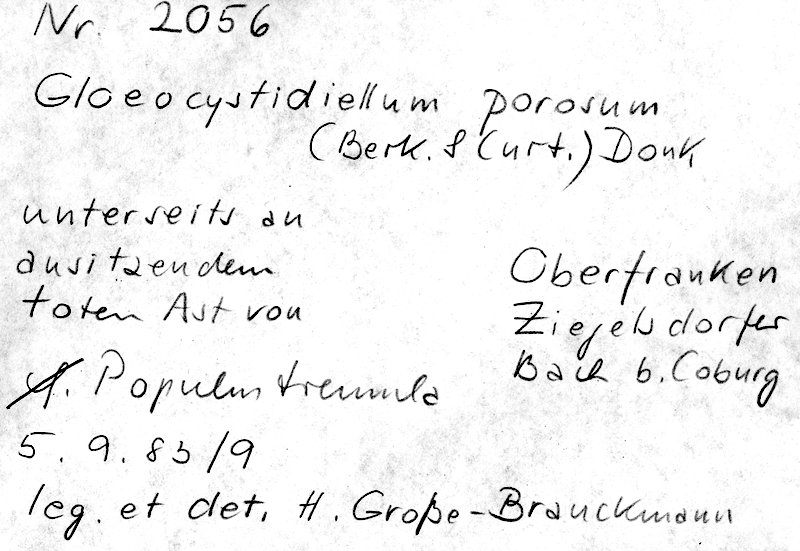 Nr. 2056
Gloeocystidiellum porosum
(Berk. & Curt.) Donk
unterseits an
ansitzendem
totem Ast von
Populus tremula
5. 9. 83/9
leg. et det. H. Große-Brauckmann
Oberfranken
Ziegelsdorfer
Bach b. Coburg